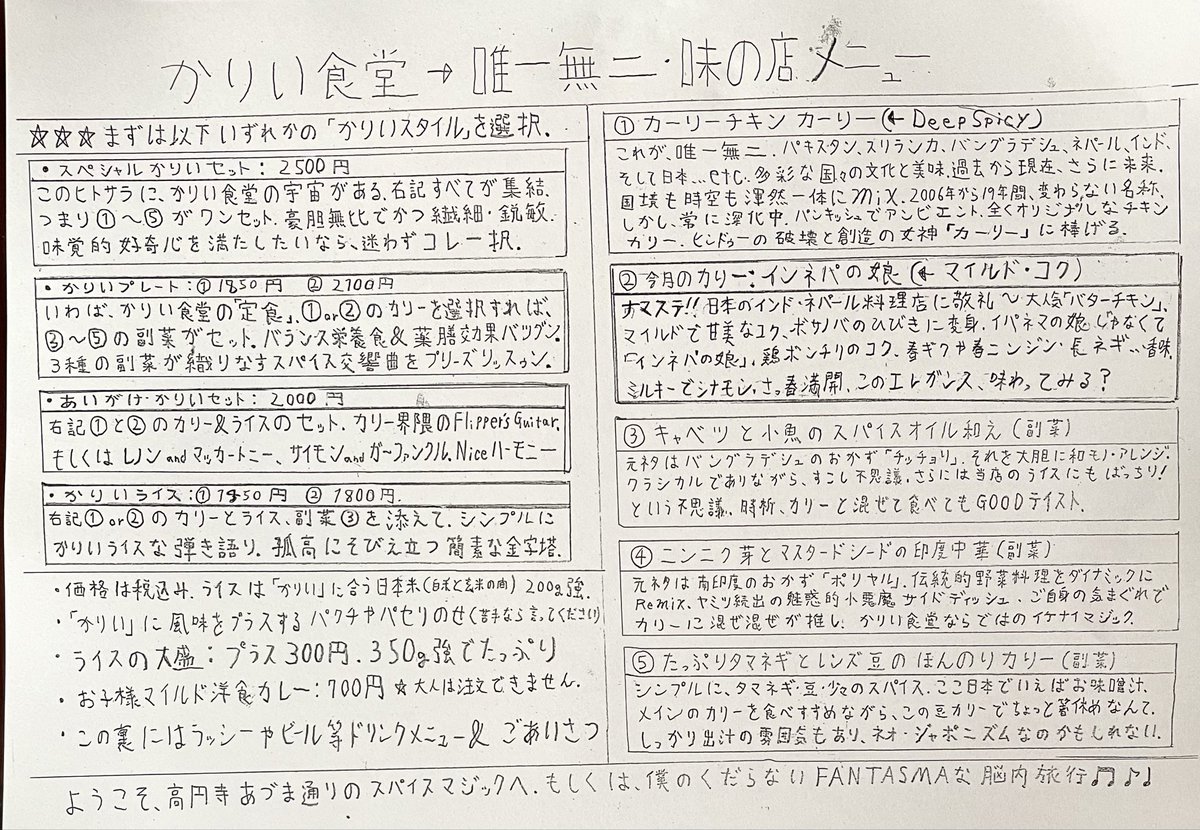 かりい食堂→唯一無二・味の店メニュー
☆☆☆まずは以下いずれかの「かりいスタイル」を選択.
・スペシャルかりいセット: 2500円
このヒトサラに、かりい食堂の宇宙がある.右記すべてが集結.
つまり①〜⑤がワンセット.豪胆無比でかつ繊細・鋭敏.
味覚的好奇心を満たしたいなら、迷わずコレ一択.
・かりいプレート:①1850円 ②2100円
いわば、かりい食堂の「定食」、①or②のカリーを選択すれば、
③〜⑤の副菜がセット.バランス栄養食&薬膳効果バツグン.
3種の副菜が織りなすスパイス交響曲をプリーズリッスゥン.
・あいがけ・かりいセット: 2,000円
右記①と②のカリー&ライスのセット.カリー界隈のFlipper's Guitar.
もしくはレノンandマッカートニー、サイモンandガーファンクル.Niceハーモニー
・かりいライス:①1550円 ②1800円.
右記①or②のカリーとライス、副菜③を添えて.シンプルに
かりいライスな弾き語り.孤高にそびえ立つ簡素な金字塔.
・価格は税込み.ライスは「かりい」に合う日本米(白米と玄米の間)200g強.
・「かりい」に風味をプラスするパクチやパセリのせ(苦手なら言ってください)
・ライスの大盛:プラス300円.350g強でたっぷり
・お子様マイルド洋食カレー:700円 ☆大人は注文できません.
・この裏にはラッシーやビール等ドリンクメニュー& ごあいさつ
① カーリーチキン カーリー(←Deep Spicy)
これが、唯一無二.パキスタン、スリランカ、バングラデシュ、ネパール、インド、
そして日本...etc.多彩な国々の文化と美味.過去から現在、さらに未来.
国境も時空も渾然一体にmix.2006年から19年間、変わらない名称.
しかし、常に深化中.パンキッシュでアンビエント.全くオリジナルなチキン
カリー.ヒンドゥーの破壊と創造の女神「カーリー」に捧げる.
② 今月のカリー:インネパの娘(←マイルド・コク)
ナマステ!!日本のインド・ネパール料理店に敬礼〜大人気「バターチキン」、
マイルドで甘美なコク、ボサノバのひびきに変身.イパネマの娘じゃなくて
「インネパの娘」、鶏ボンチリのコク.春ギクや春ニンジン・長ネギ...香味.
ミルキーでシナモン、さっ春満開.このエレガンス、味わってみる?
③ キャベツと小魚のスパイスオイル和え(副菜)
元ネタはバングラデシュのおかず「チッチョリ」.それを大胆に和モノ・アレンジ.
クラシカルでありながら、すこし不思議.さらには当店のライスにもばっちり!
という不思議.時折、カリーと混ぜて食べてもGOODテイスト.
④ ニンニク芽とマスタードシードの印度中華(副菜)
元ネタは南印度のおかず「ポリヤル」.伝統的野菜料理をダイナミックに
Remix.ヤミツ続出の魅惑的小悪魔サイドディッシュ.ご自身の気まぐれで
カリーに混ぜ混ぜが推し.かりい食堂ならではのイケナイマジック.
⑤ たっぷりタマネギとレンズ豆のほんのりカリー(副菜)
シンプルに、タマネギ・豆・少々のスパイス.ここ日本でいえばお味噌汁.
メインのカリーを食べすすめながら、この豆カリーでちょっと箸休めなんて.
しっかり出汁の雰囲気もあり、ネオ・ジャポニズムなのかもしれない.
ようこそ、高円寺あづま通りのスパイスマジックへ.もしくは、僕のくだらないFANTASMAな脳内旅行♫♪♩